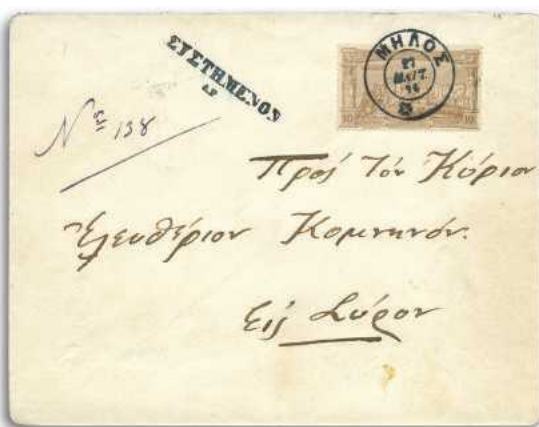 ΣΥΣΤΗΜΕΝΟΝ
ΜΗΛΟΣ
27
96
10 10
Nº 138
Πρός τόν Κύριον
Ἐλευθέριον Κομνηνόν.
Εἰς Σύρον